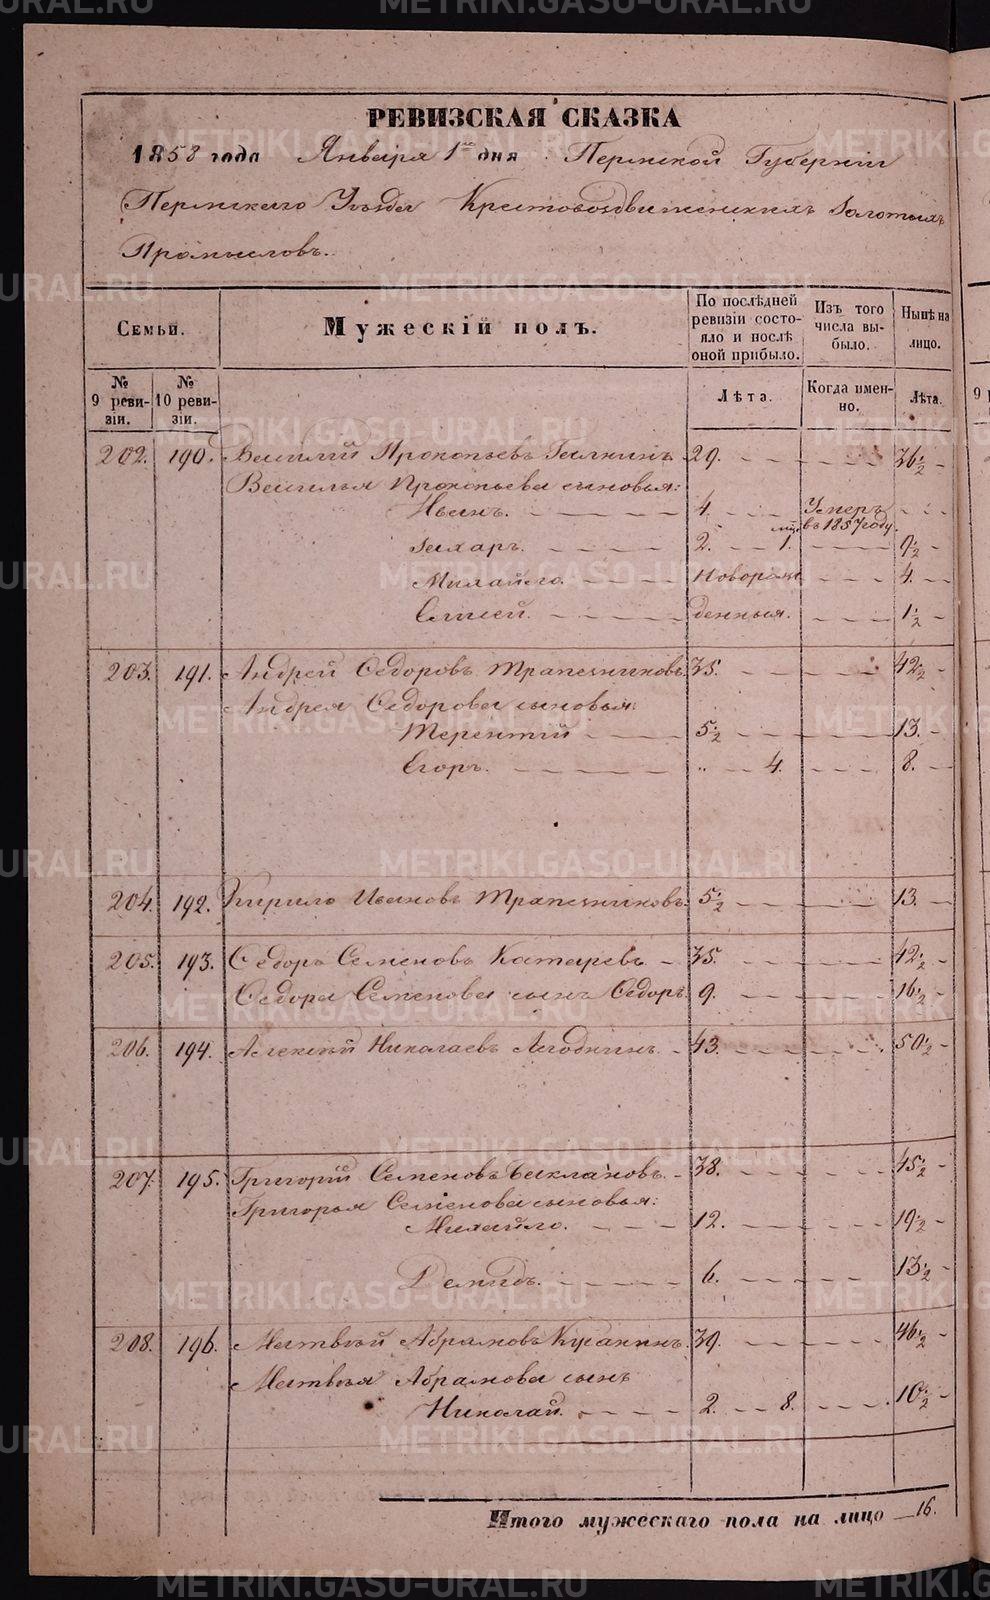 METRIKI.GASO-URAL.RU
РЕВИЗСКАЯ СКАЗКА
1858 года Января 1го дня Пермской Губернiи
Пермскаго Уѣзда Крестовоздвиженскихъ Золотыхъ
Промысловъ.
Семьи.
Мужескiй полъ.
По послѣдней ревизiи состояло и послѣ оной прибыло.
Изъ того числа выбыло.
Нынѣ на лицо.
№ 9 ревизiи.
№ 10 ревизiи.
Лѣта.
Когда именно.
Лѣта.
202. 190. Василiй Прокопьевъ Галкинъ 29. 36½
Василья Прокопьева сыновья:
Иванъ. 4. Умеръ въ 1857 году.
Захаръ. 2. мѣс. 1. 9½
Михайло. Новорож 4.
Елисей. денныя. 1½
203. 191. Андрей Ѳедоровъ Трапезниковъ. 35. 42½
Андрея Ѳедорова сыновья:
Терентiй 5½ 13.
Егоръ. " 4. 8.
204. 192. Кирило Ивановъ Трапезниковъ. 5½ 13.
205. 193. Ѳедоръ Семеновъ Катаревъ 35. 42½
Ѳедора Семенова сынъ Ѳедоръ. 9. 16½
206. 194. Алексѣй Николаевъ Ягодкинъ. 43. 50½
207. 195. Григорiй Семеновъ Баклановъ. 38. 45½
Григорья Семенова сыновья:
Михайло. 12. 19½
Демидъ. 6. 13½
208. 196. Матвѣй Абрамовъ Кусакинъ. 39. 46½
Матвѣя Абрамова сынъ
Николай. 2. 8. 10½
Итого мужескаго пола на лицо 16.